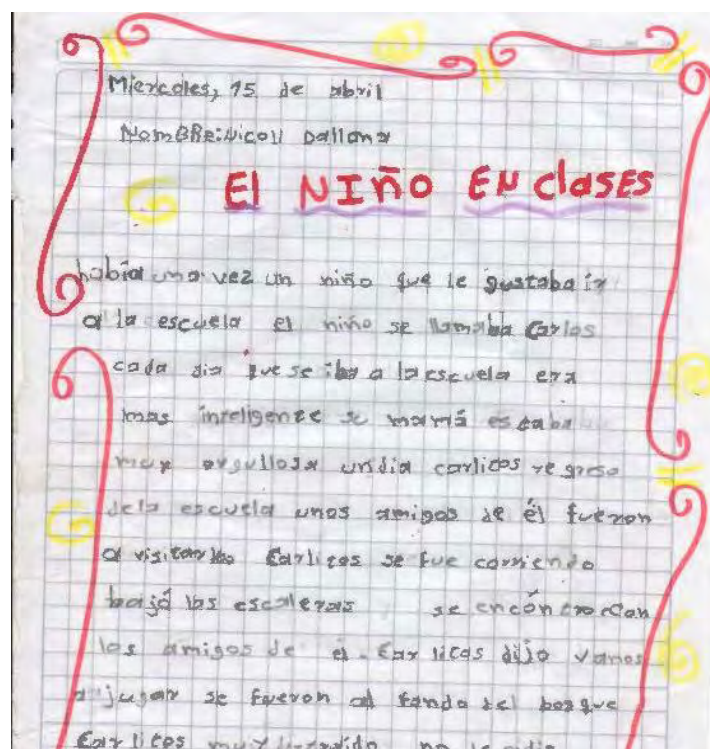 Miercoles, 15 de abril
NomBRe: Nicoll Dallana
El NIÑO EN clASES
había una vez un niño que le gustaba ir
a la escuela el niño se llamaba Carlos
cada dia que se iba a la escuela era
mas inteligente su mamá estaba
muy orgullosa un dia carlitos regreso
dela escuela unos amigos de él fueron
a visitarlo Carlitos se fue corriendo
bajó las escaleras se encontro con
los amigos de el. Carlitos dijo vamos
a jugar se fueron al fondo del bosque
Carlitos muy no